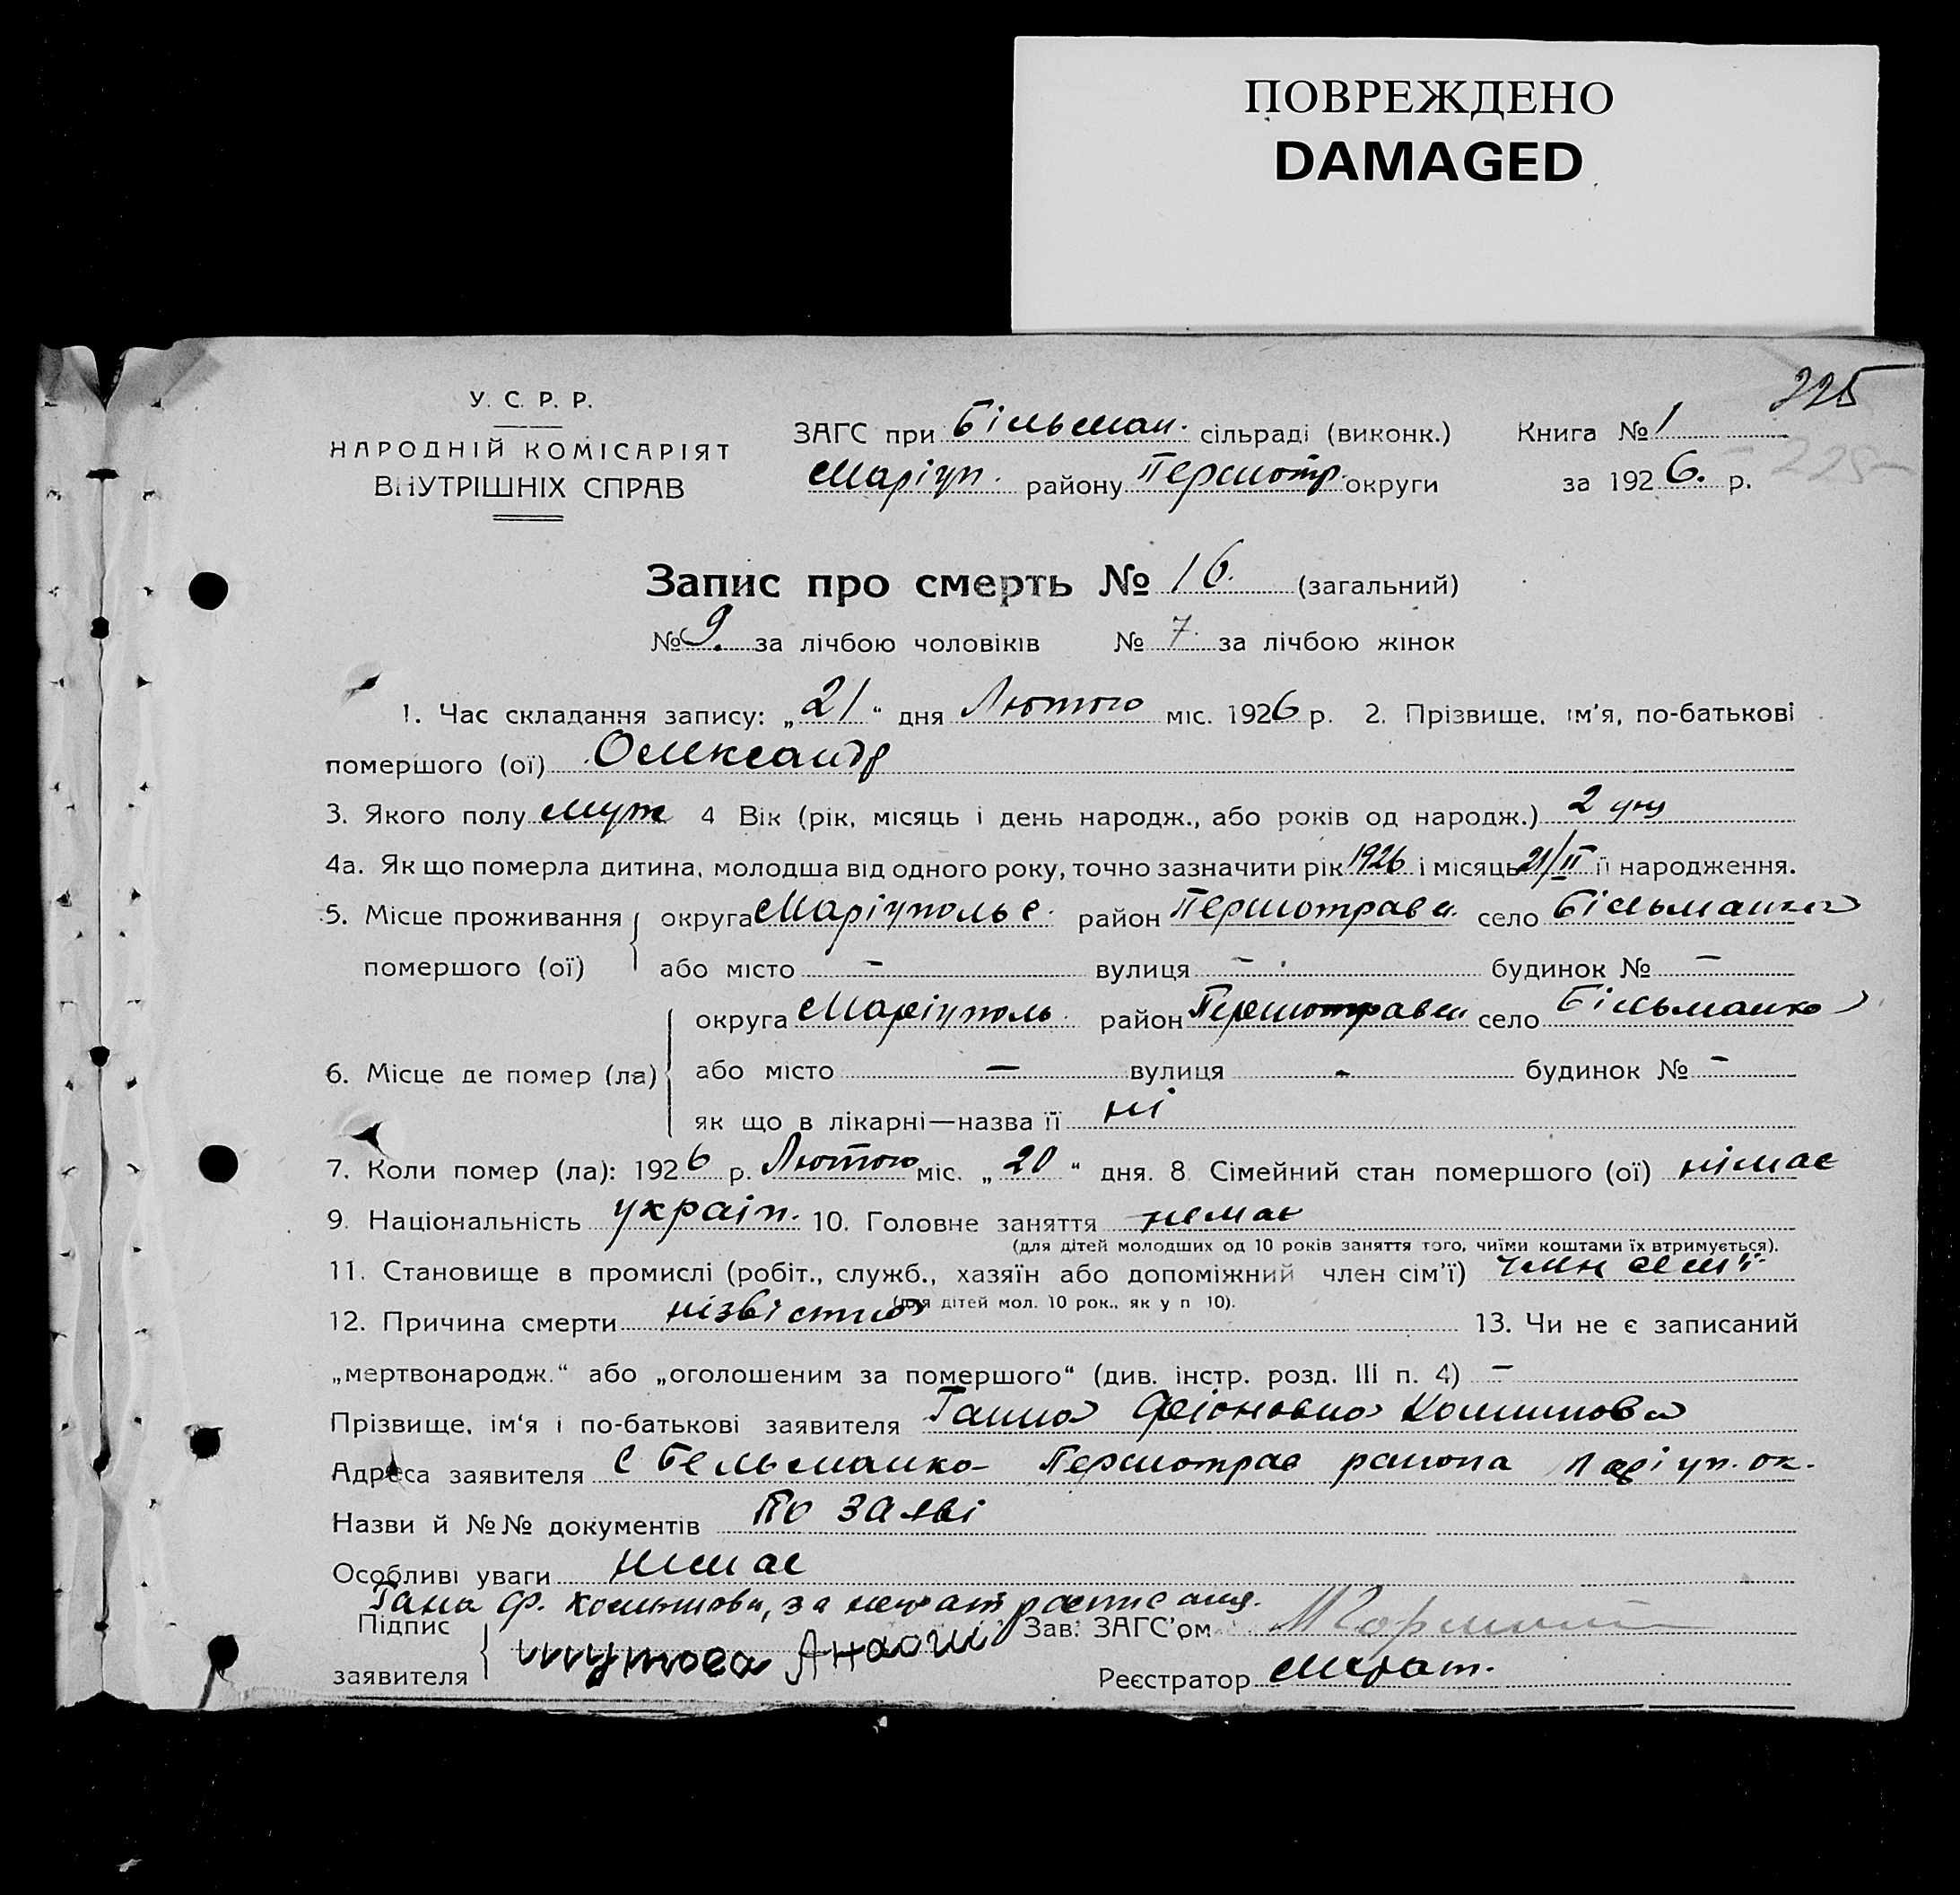 ПОВРЕЖДЕНО
DAMAGED
225
У. С. Р. Р.
НАРОДНІЙ КОМІСАРІЯТ
ВНУТРІШНІХ СПРАВ
ЗАГС при Більман. сільраді (виконк.) Книга № 1
Маріуп. району Першотр. округи за 1926. р.
225
Запис про смерть № 16. (загальний)
№ 9. за лічбою чоловіків № 7. за лічбою жінок
1. Час складання запису: „21“ дня Лютого міс. 1926 р. 2. Прізвище, ім’я, по-батькові
помершого (ої) Олександр
3. Якого полу муж 4 Вік (рік, місяць і день народж., або років од народж.) 2
4а. Як що померла дитина, молодша від одного року, точно зазначити рік 1926 і місяць 21/II її народження.
5. Місце проживання помершого (ої) округа Маріупольс. район Першотравн. село Більманка
або місто – вулиця – будинок № –
6. Місце де помер (ла) округа Маріуполь. район Першотравн село Більманка
або місто – вулиця – будинок № –
як що в лікарні—назва її ні
7. Коли помер (ла): 1926 р. Лютого міс. „20“ дня. 8 Сімейний стан помершого (ої) німає
9. Національність україн. 10. Головне заняття немає
(для дітей молодших од 10 років заняття того, чиїми коштами їх втримується).
11. Становище в промислі (робіт., служб., хазяїн або допоміжний член сім’ї) член сем'ї
(для дітей мол. 10 рок., як у п 10).
12. Причина смерти нізвістна 13. Чи не є записаний
„мертвонародж.“ або „оголошеним за помершого“ (див. інстр. розд. III п. 4) –
Прізвище, ім‘я і по-батькові заявителя Ганна
Адреса заявителя с Бельманка Першотрав района Маріуп. ок.
Назви й №№ документів по заяві
Особливі уваги німає
Гана Ф. за
Підпис заявителя Зав. ЗАГС’ом
Реєстратор